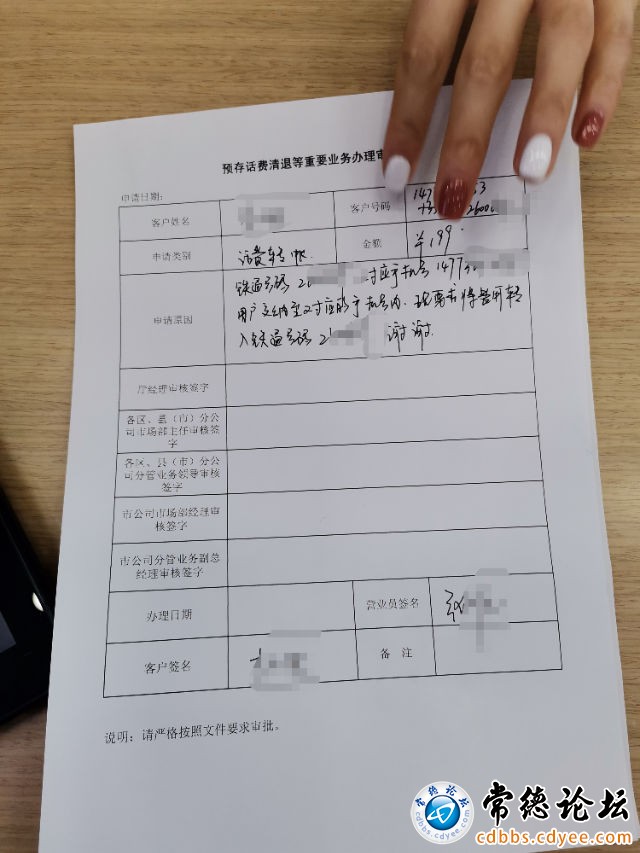 预存话费清退等重要业务办理审
申请日期:
客户姓名 客户号码 147 3
2600
申请类别 话费转账 金额 ¥199
申请原因 铁通号码 2 对应手机号 1477
用户交纳至对应的手机号内.现要求将费用转
入铁通号码 2 谢谢.
厅经理审核签字
各区、县(市)分公
司市场部主任审核签
字
各区、县(市)分公
司分管业务领导审核
签字
市公司市场部经理审
核签字
市公司分管业务副总
经理审核签字
办理日期 营业员签名
客户签名 备 注
说明:请严格按照文件要求审批。
常德论坛
cdbbs.cdyee.com